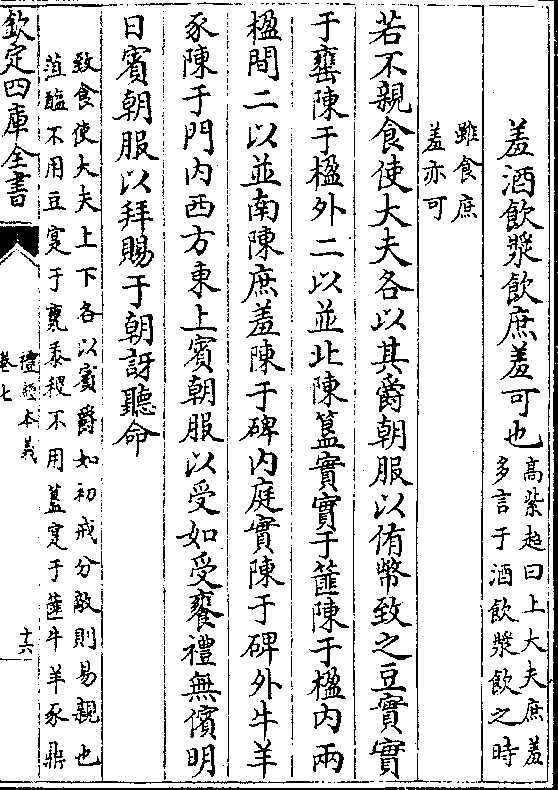 羞酒飲漿飲庶羞可也
高紫超曰上大夫庶羞
多言于酒飲漿飲之時
雖食庶
羞亦可
若不親食使大夫各以其爵朝服以侑幣致之豆實實
于罋陳于楹外二以並北陳簋實實于篚陳于楹内兩
楹間二以並南陳庶羞陳于碑内庭實陳于碑外牛羊
豕陳于門内西方東上賓朝服以受如受饔禮無儐明
日賓朝服以拜賜于朝訝聽命
致食使大夫上下各以賓爵如初戒分敵則易親也
菹醢不用豆寔于罋黍稷不用簋寔于篚牛羊豕鼎
欽定四庫全書
禮經本義
卷七
十六